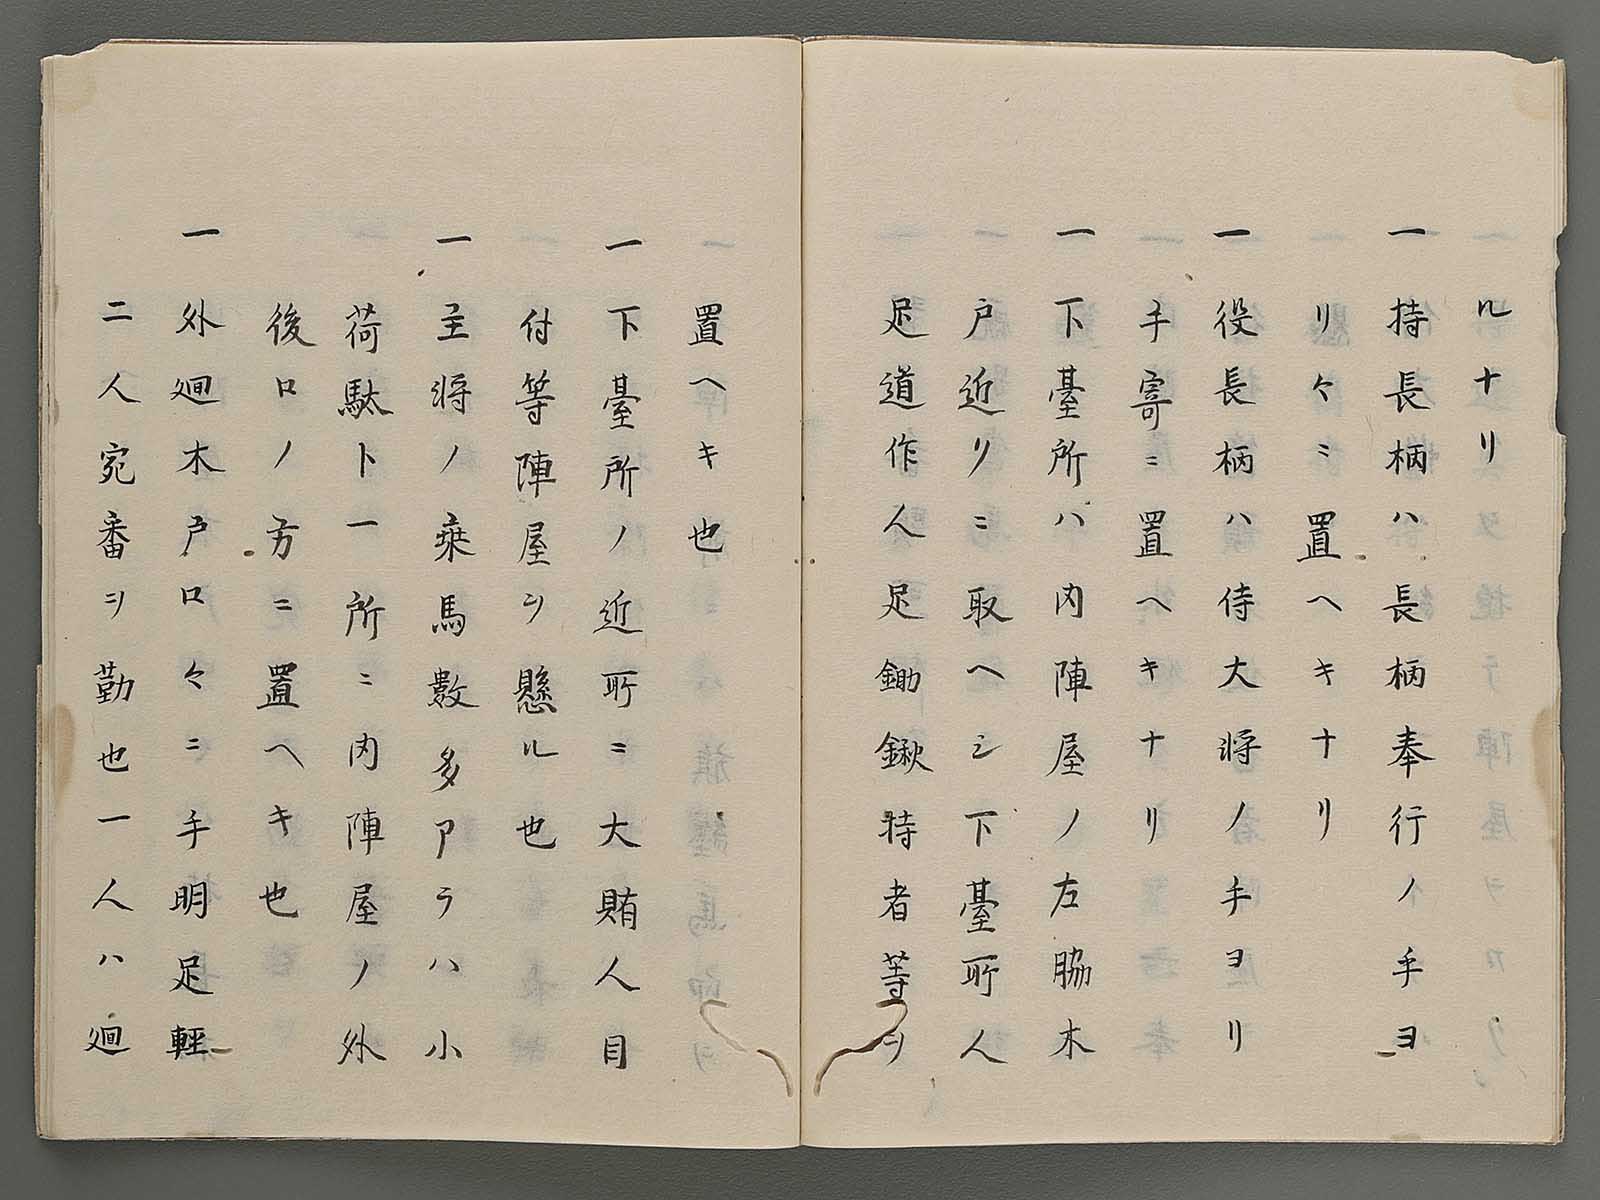 ルナリ
一 持長柄ハ長柄奉行ノ手ヨ
リ々ニ置ヘキナリ
一 役長柄ハ侍大将ノ手ヨリ
手寄ニ置ヘキナリ
一 下臺所ハ内陣屋ノ左脇木
戸近リニ取ヘシ下臺所人
足道作人足鋤鍬持者等ヲ
置ヘキ也
一 下臺所ノ近所ニ大賄人目
付等陣屋ヲ懸ル也
一 主将ノ乗馬數多アラハ小
荷駄ト一所ニ内陣屋ノ外
後ロノ方ニ置ヘキ也
一 外廻木戸口々ニ手明足輕
二人宛番ヲ勤也一人ハ廻